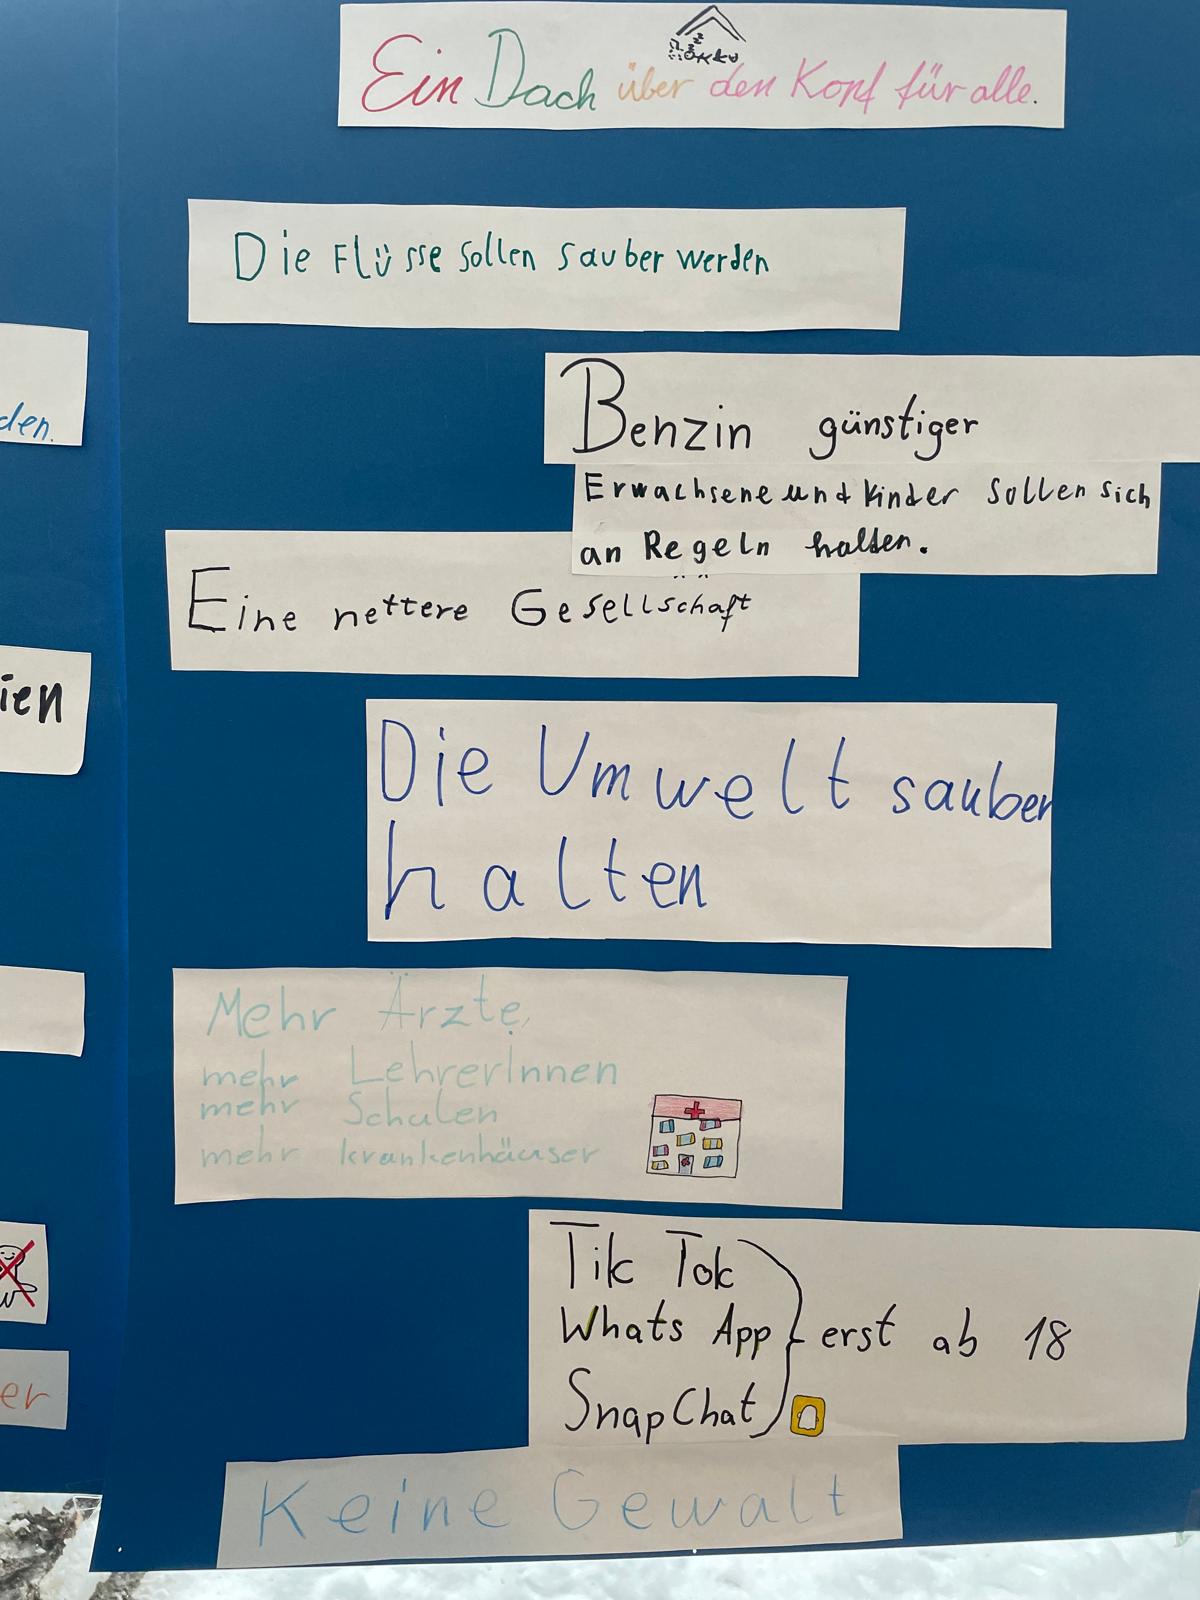 Ein Dach über den Kopf für alle.
Die Flüsse sollen sauber werden
den.
Benzin günstiger
Erwachsene und Kinder sollen sich
an Regeln halten.
Eine nettere Gesellschaft
ien
Die Umwelt sauber
halten
Mehr Ärzte,
mehr LehrerInnen
mehr Schulen
mehr krankenhäuser
Tik Tok
Whats App erst ab 18
SnapChat
er
Keine Gewalt